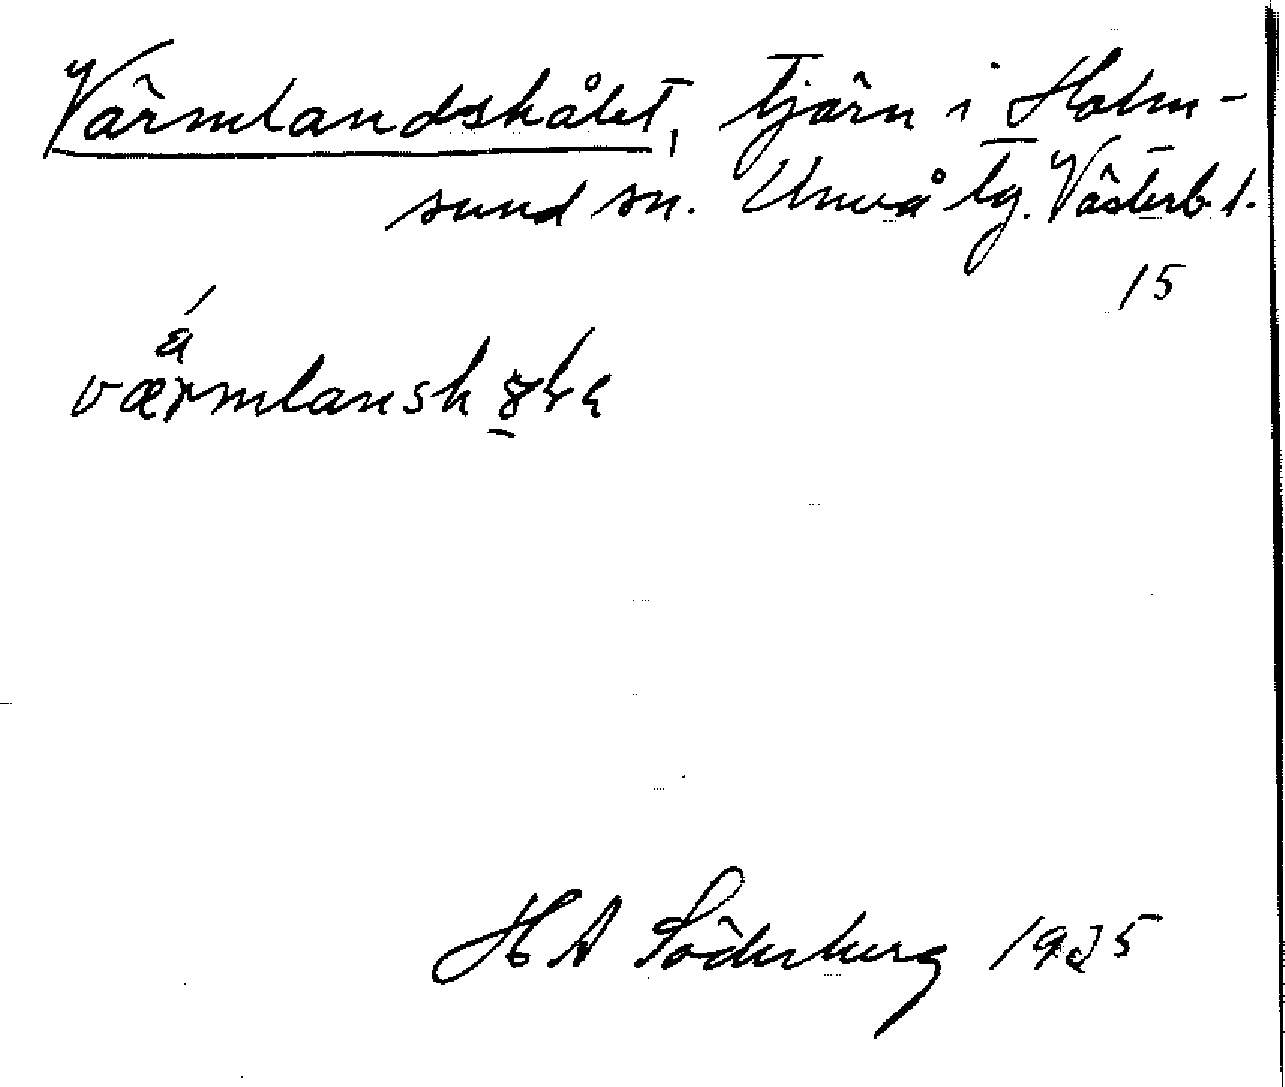 Värmlandshålet, tjärn i Holm-
sund sn. Umeå tg. Västerb. l.
15
á
værmlansk
H A Söderberg 1925